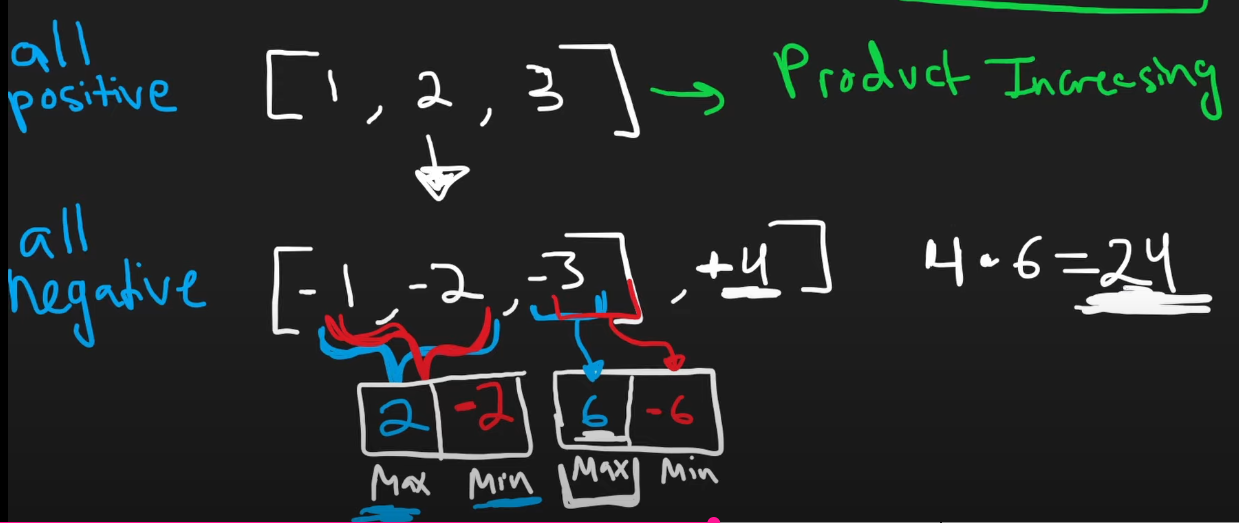 all
positive
[1, 2, 3] → Product Increasing
all
negative
[-1, -2, -3], +4] 4 · 6 = 24
2 -2 6 -6
Max Min Max Min